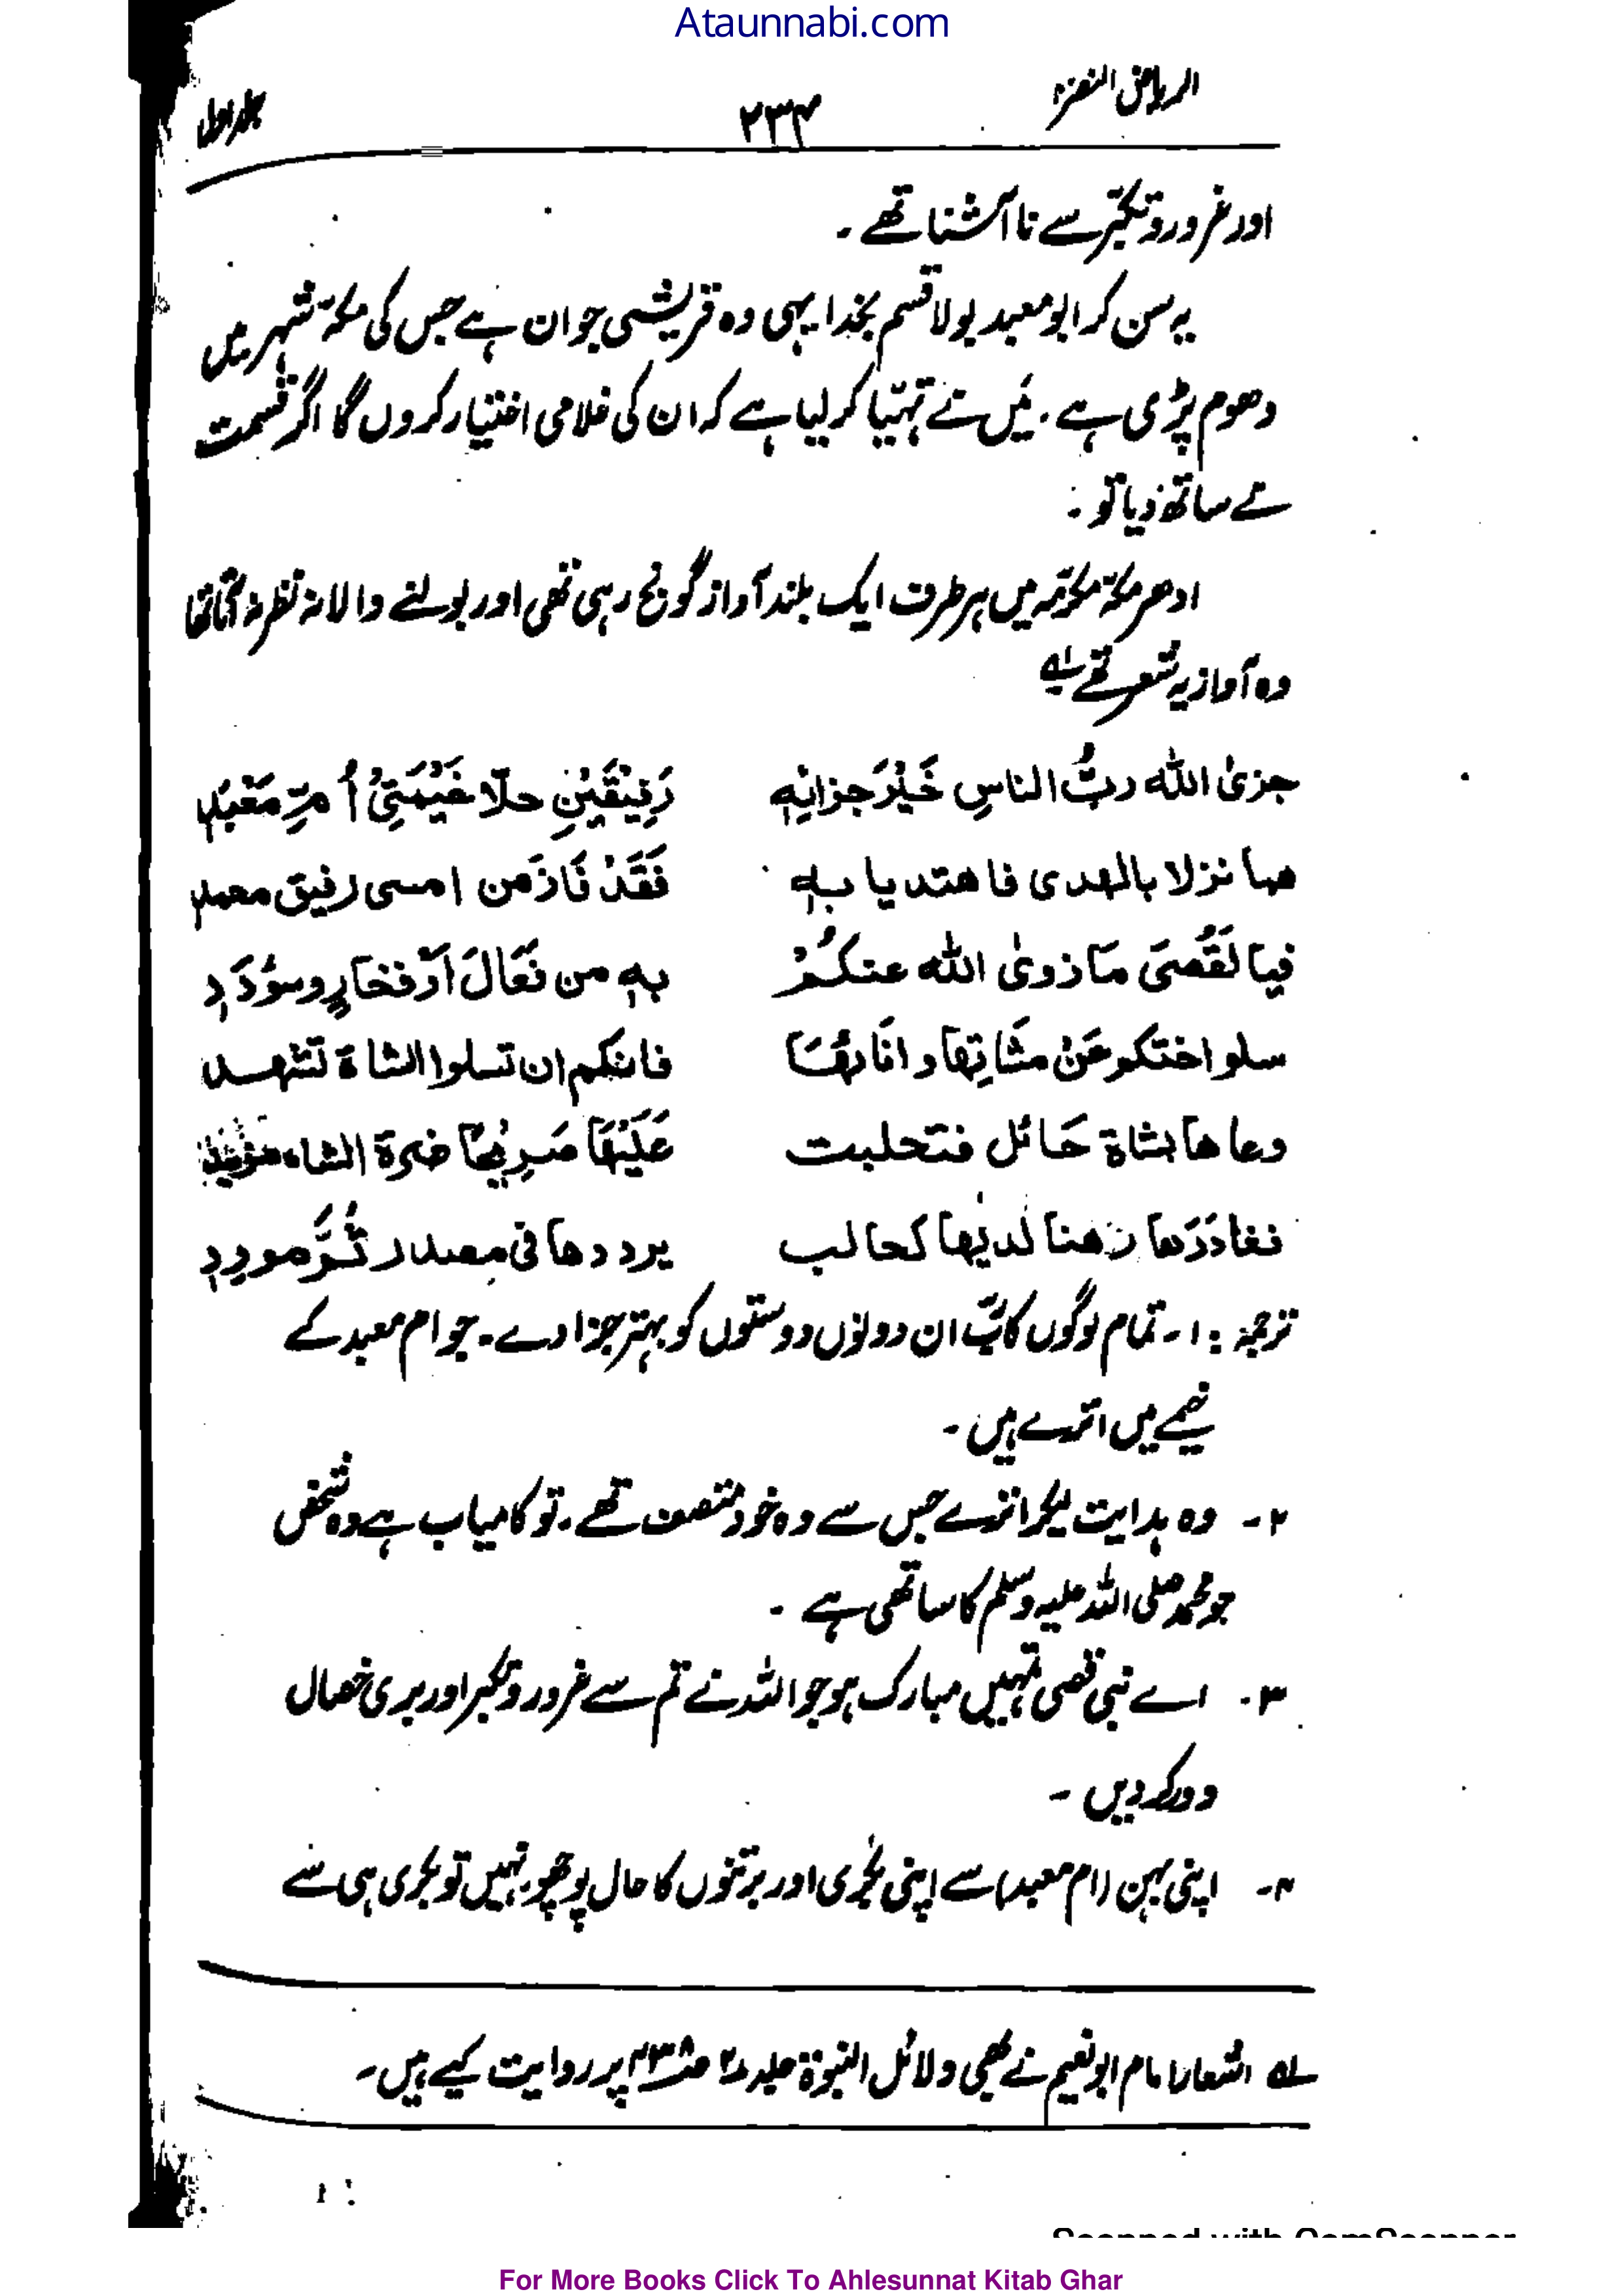 Ataunnabi.com
الریاض النضرۃ ۲۳۴ جلد اول
اور غرور و تکبّر سے ناآشنا تھے ۔
یہ سن کر ابو معبد بولا قسم بخدا یہی وہ قریشی جوان ہے جس کی مکہ شہر میں
دھوم پڑی ہے ۔ میں نے تہیّا کر لیا ہے کہ ان کی غلامی اختیار کروں گا اگر قسمت
نے ساتھ دیا تو ۔
ادھر مکہ مکرمہ میں ہر طرف ایک بلند آواز گونج رہی تھی اور بولنے والا نہ نظر نہ آتا تھا
وہ آواز یہ شعر تھے ؎۱
جزیٰ الله ربُّ الناسِ خَیْرَ جزائِهٖ رَفِیْقَیْنِ حلّا خَیْمَتِیْ اُمِّ مَعْبَدٖ
هما نزلا بالهدی فاهتدیا بهٖ فَقَدْ فَازَ مَن امسی رفیق محمدٖ
فیا لَقُصَیَّ مَا زویٰ الله عنکُمْ بهٖ من فَعَالَ اَوْ فخارٍ وسُوْدَدٖ
سلوا اختکم عَنْ شَاتِهَا و انَائِهَا فانکم ان تسلوا الشاة تشهد
دعاها بشاة حَائل فتحلبت عَلَیْهَا صَرِیْحًا ضرة الشاء مزبد
فغادَرَها رهنا لدیها کحالب یرددها فی مصدر ثُمَّ موردٖ
ترجمہ : ۱۔ تمام لوگوں کا ربّ ان دونوں دوستوں کو بہتر جزا دے ۔ جو ام معبد کے
خیمے میں اترے ہیں ۔
۲۔ وہ ہدایت لیکر اترے جس سے وہ خود متصف تھے ۔ تو کامیاب ہے وہ شخص
جو محمد صلی اللہ علیہ وسلم کا ساتھی ہے ۔
۳۔ اے نبی قصی تمہیں مبارک ہو جو اللہ نے تم سے غرور و تکبر اور بری خصال
دور کر دیں ۔
۴۔ اپنی بہن (ام معبد) سے اپنی بکری اور برتنوں کا حال پوچھو ۔ نہیں تو بکری ہی سے
؎۱ اشعار امام ابو نعیم نے بھی دلائل النبوۃ جلد ۲ پر روایت کیے ہیں ۔
Scanned with CamScanner
For More Books Click To Ahlesunnat Kitab Ghar